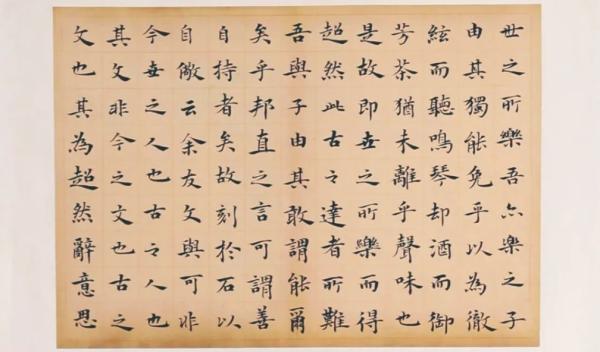 世之所樂吾亦樂之子
由其獨能免乎以為徹
絃而聽鳴琴却酒而御
芳茶猶未離乎聲味也
是故即世之所樂而得
超然此古之達者所難
吾與子由其敢謂能爾
矣乎邦直之言可謂善
自持者矣故刻於石以
自儆云余友文與可非
今世之人也古之人也
其文非今之文也古之
文也其為超然辭意思